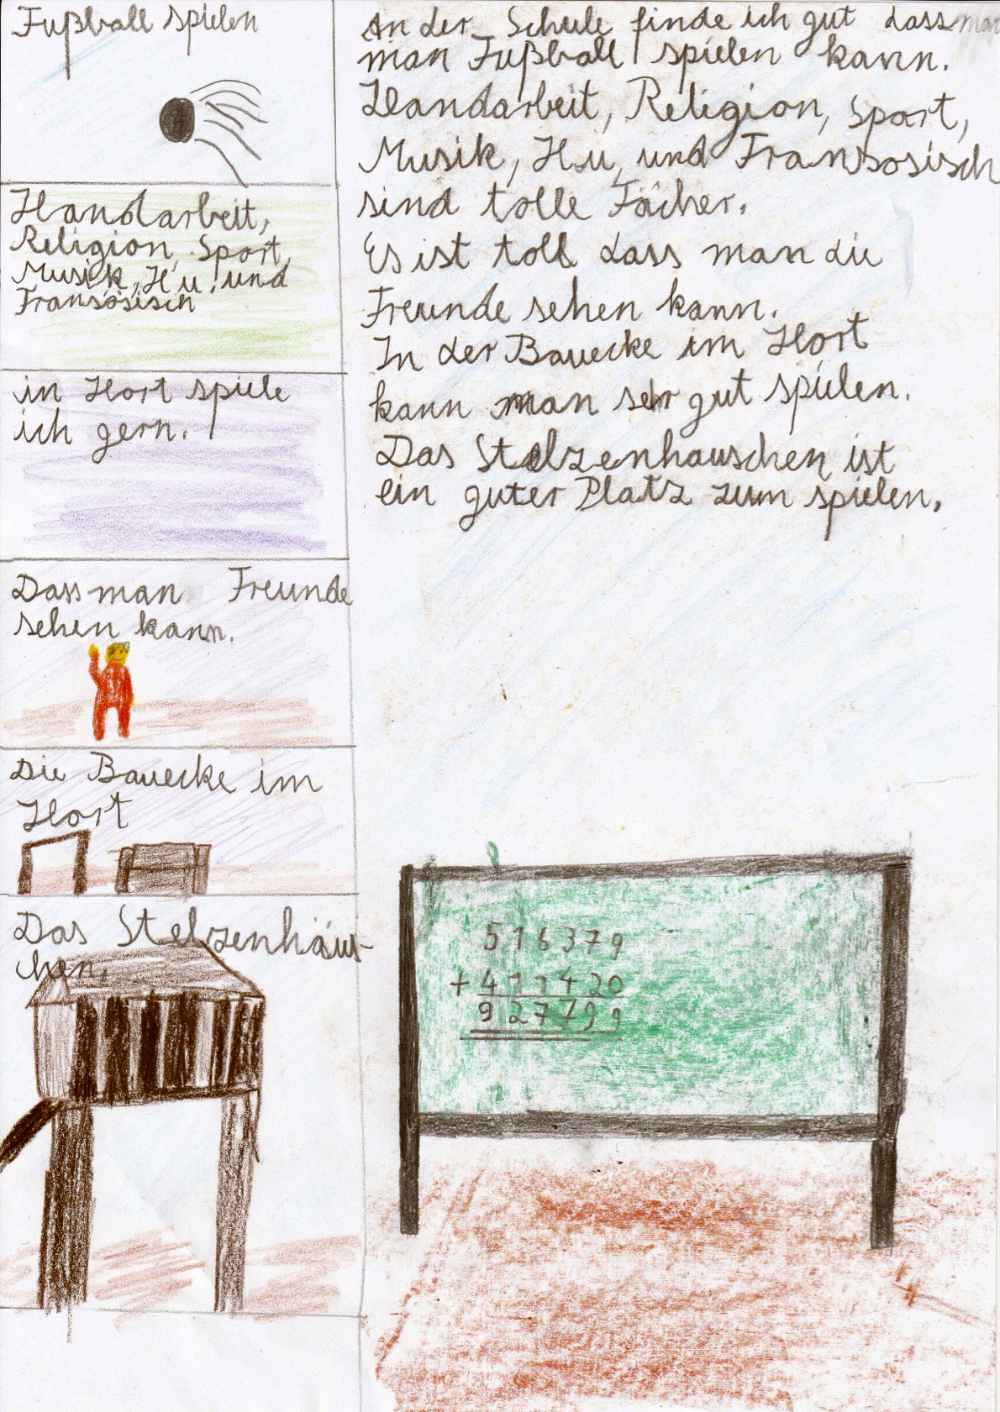 Fußball spielen
Handarbeit,
Religion, Sport,
Musik, Hu. und
Fransösisch
in Hort spiele
ich gern.
Dass man Freunde
sehen kann.
Die Bauecke im
Hort
Das Stelzenhäus-
chen.
An der Schule finde ich gut dass man
man Fußball spielen kann.
Handarbeit, Religion, Sport,
Musik, Hu, und Fransosisch
sind tolle Fächer.
Es ist toll dass man die
Freunde sehen kann.
In der Bauecke im Hort
kann man sehr gut spielen.
Das Stelzenhauschen ist
ein guter Platz zum spielen.
516379
+ 411420
927799